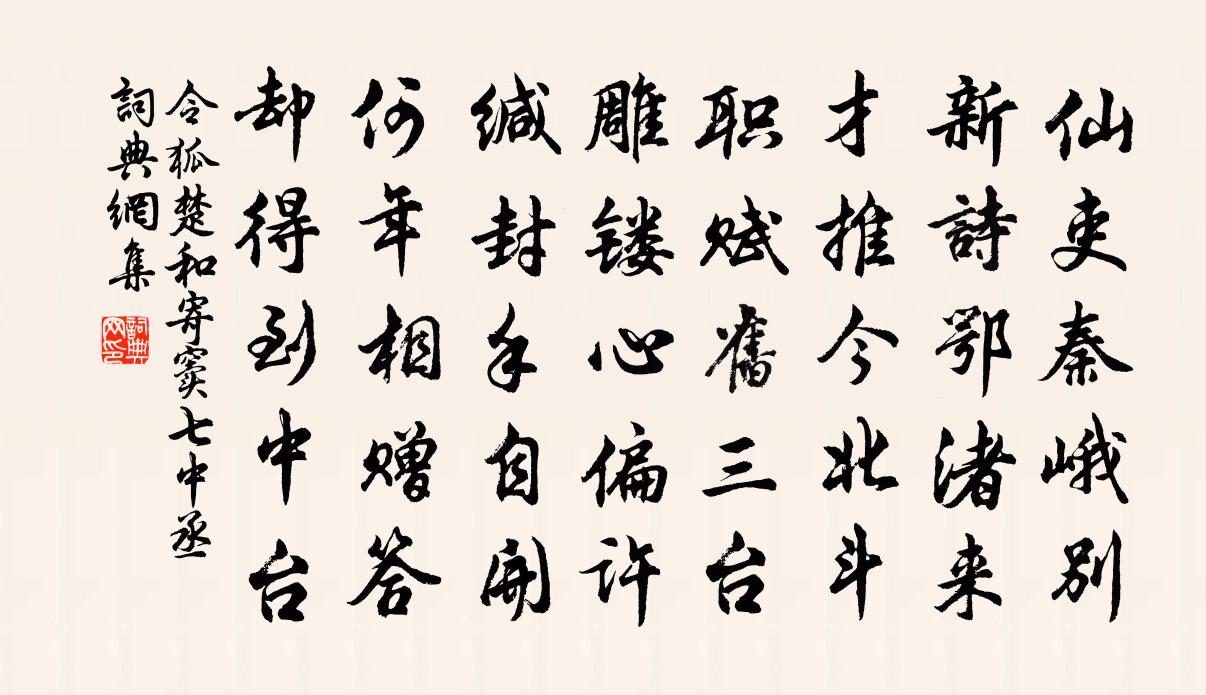 仙吏秦峨别
新詩鄂渚来
才推今北斗
职赋舊三台
雕镂心偏许
缄封手自開
何年相赠答
却得到中台
令狐楚和寄窦七中丞
詞典網集
詞典网印